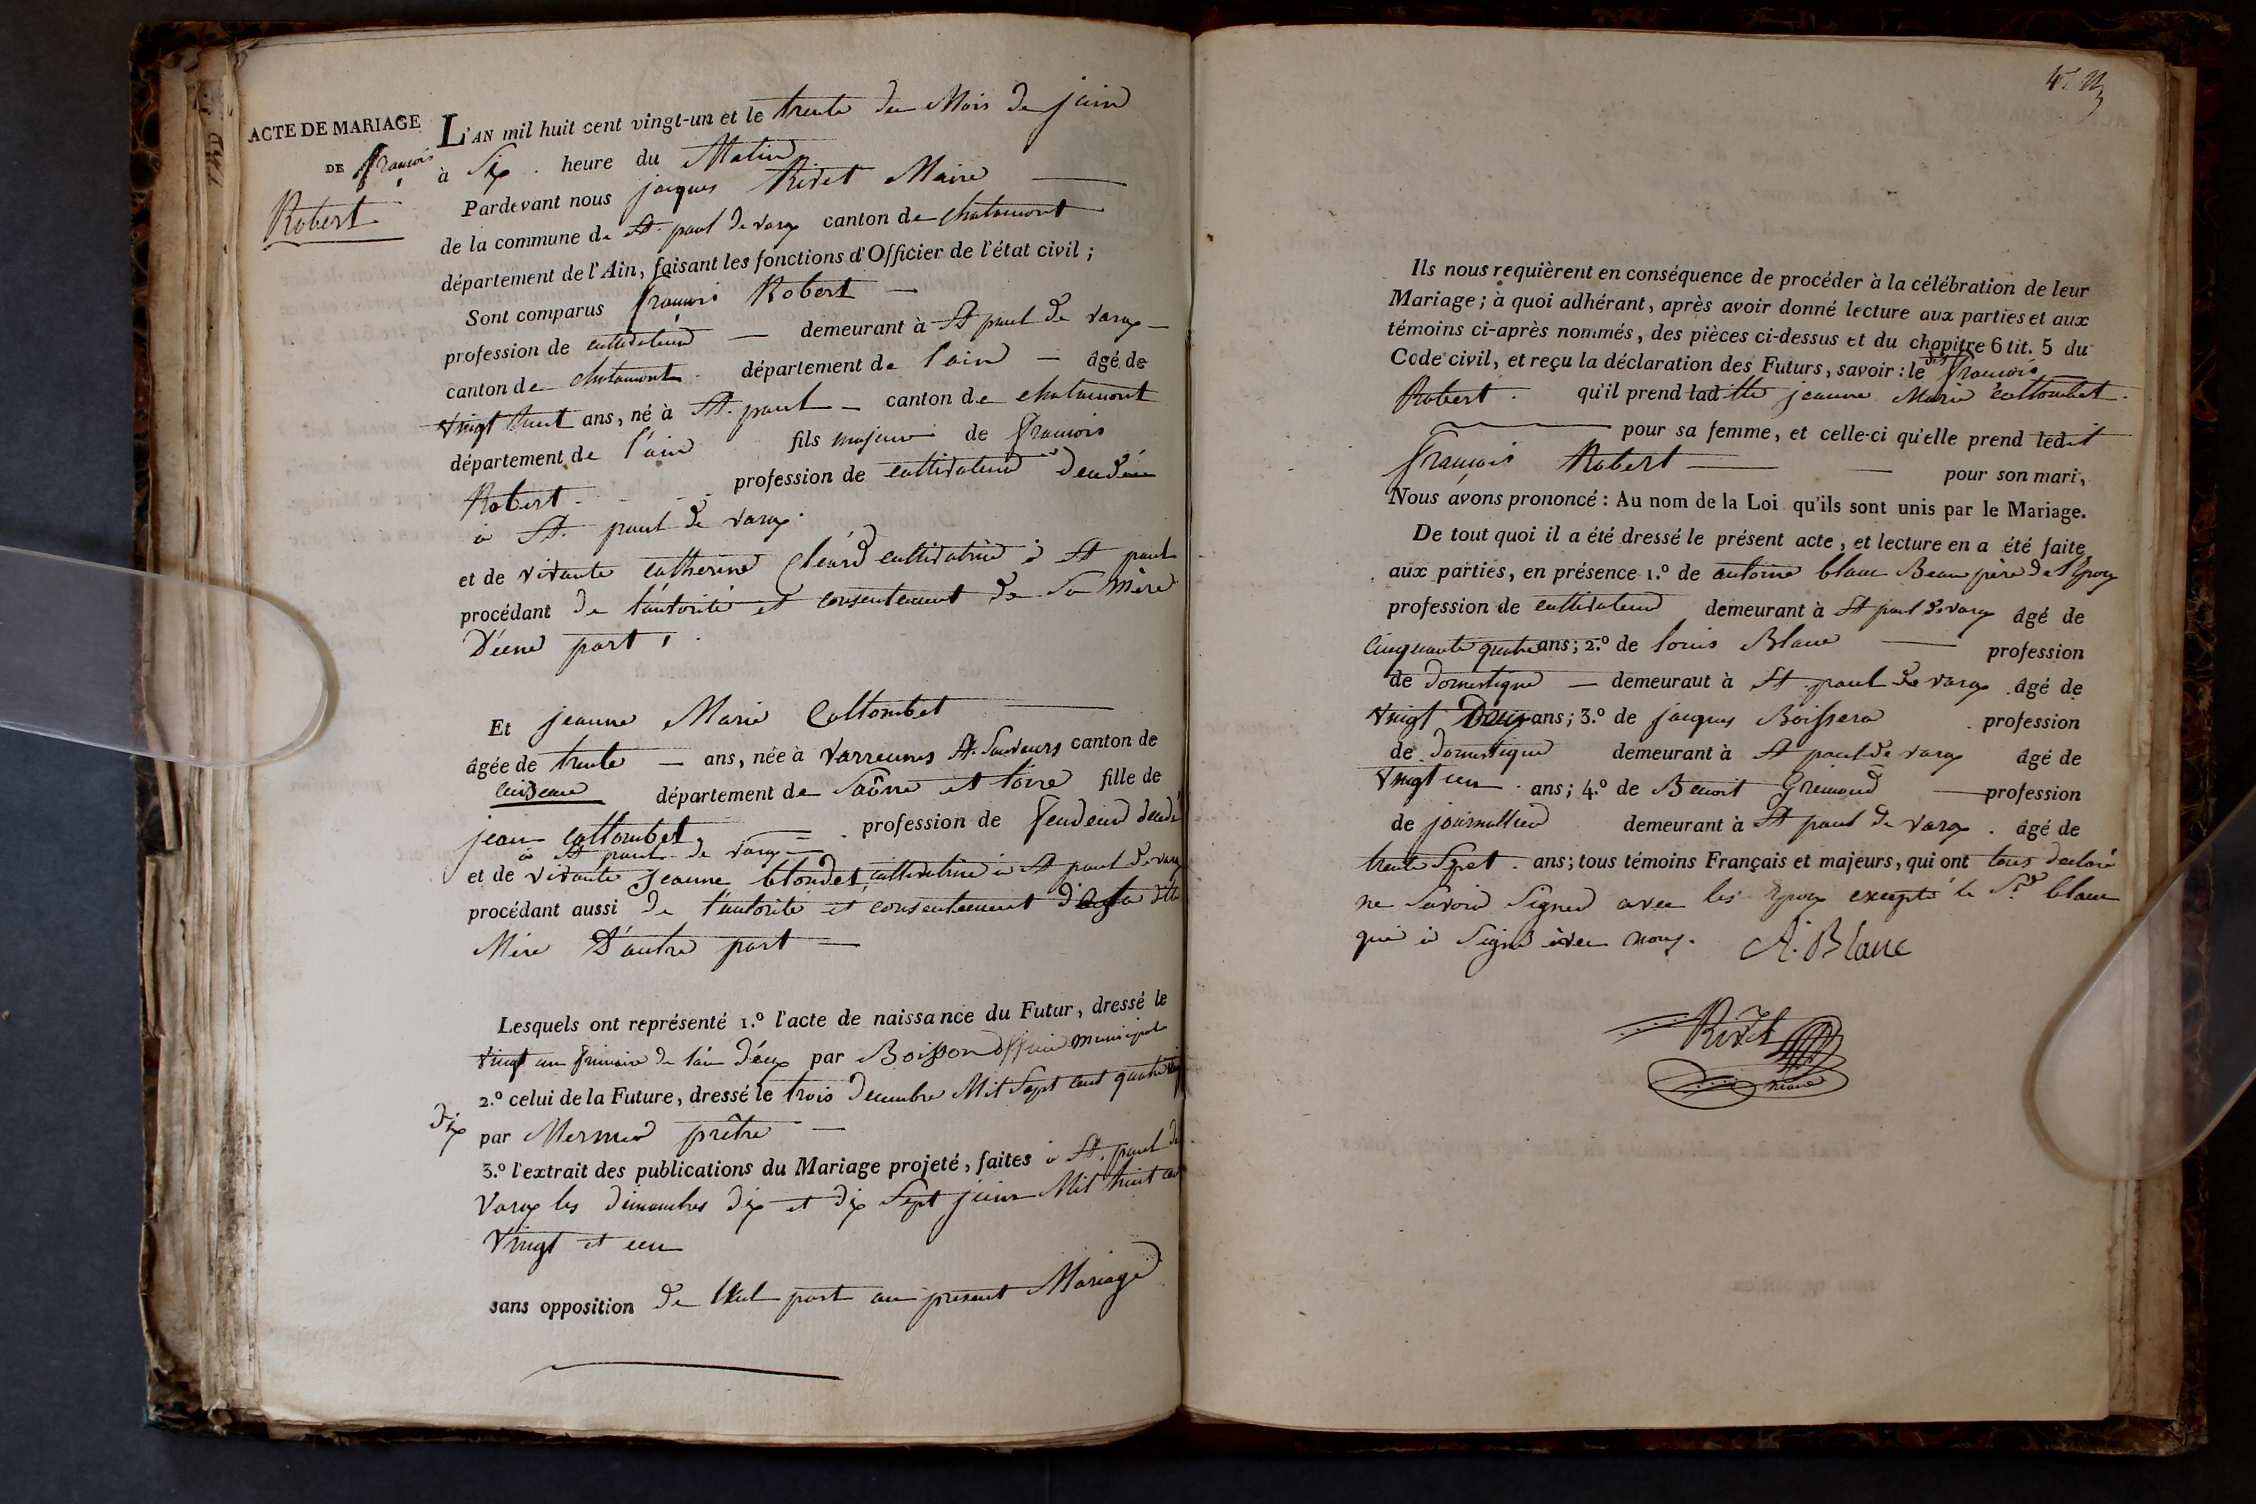 ACTE DE MARIAGE
DE françois
Robert
L'AN mil huit cent vingt-un et le trente du Mois de juin
à Six heure du Matin
Pardevant nous jacques Rivet Maire
de la commune de St paul de varax canton de chatamont
département de l'Ain, faisant les fonctions d'Officier de l'état civil ;
Sont comparus françois Robert
profession de cultivateur demeurant à St paul de varax
canton de chatamont département de l'ain âgé de
vingt huit ans, né à St. paul canton de chatamont
département de l'ain fils majeur de françois
Robert profession de cultivateur décédé
à St. paul de varax.
et de vivante catherine cultivatrice à St paul
procédant de l'autorité et consentement de Sa Mère
D'une part,
Et jeanne Marie Collombet
âgée de trente ans, née à varennes St. Sauveurs canton de
cuiseau département de Saône et loire fille de
jean collombet profession de fendeur décédé
à St paul de varax
et de vivante jeanne blondel, cultivatrice à St paul de varax
procédant aussi de l'autorité et consentement de sa ditte
Mère D'autre part
Lesquels ont représenté 1.º l'acte de naissance du Futur, dressé le
vingt un frimaire de l'an deux par Boisson officier municipal
2.º celui de la Future, dressé le trois decembre Mil Sept cent quatre vingt
dix par Mermet prêtre
3.º l'extrait des publications du Mariage projeté, faites à St. paul de
varax les dimanches dix et dix Sept juin Mil huit cent
vingt et un
sans opposition de Nul part au present Mariage
Ils nous requièrent en conséquence de procéder à la célébration de leur
Mariage ; à quoi adhérant, après avoir donné lecture aux parties et aux
témoins ci-après nommés, des pièces ci-dessus et du chapitre 6 tit. 5 du
Code civil, et reçu la déclaration des Futurs, savoir : le dit françois
Robert qu'il prend laditte jeanne Marie collombet
pour sa femme, et celle-ci qu'elle prend ledit
françois Robert pour son mari,
Nous avons prononcé : Au nom de la Loi qu'ils sont unis par le Mariage.
De tout quoi il a été dressé le présent acte, et lecture en a été faite
aux parties, en présence 1.º de antoine blanc Beau père de l'Epoux
profession de cultivateur demeurant à St paul de varax âgé de
cinquante quatre ans ; 2.º de louis Blanc profession
de domestique demeuraut à St paul de varax âgé de
vingt Deux ans ; 3.º de jacques Boisserat profession
de domestique demeurant à St paul de varax âgé de
vingt un ans ; 4.º de Benoit Gremaud profession
de journallier demeurant à St paul de varax âgé de
trente Sept ans ; tous témoins Français et majeurs, qui ont tous declaré
ne Savoir Signer avec les Epoux excepté le Sr. blanc
qui à Signé avec nous. A. Blanc
Rivet
maire